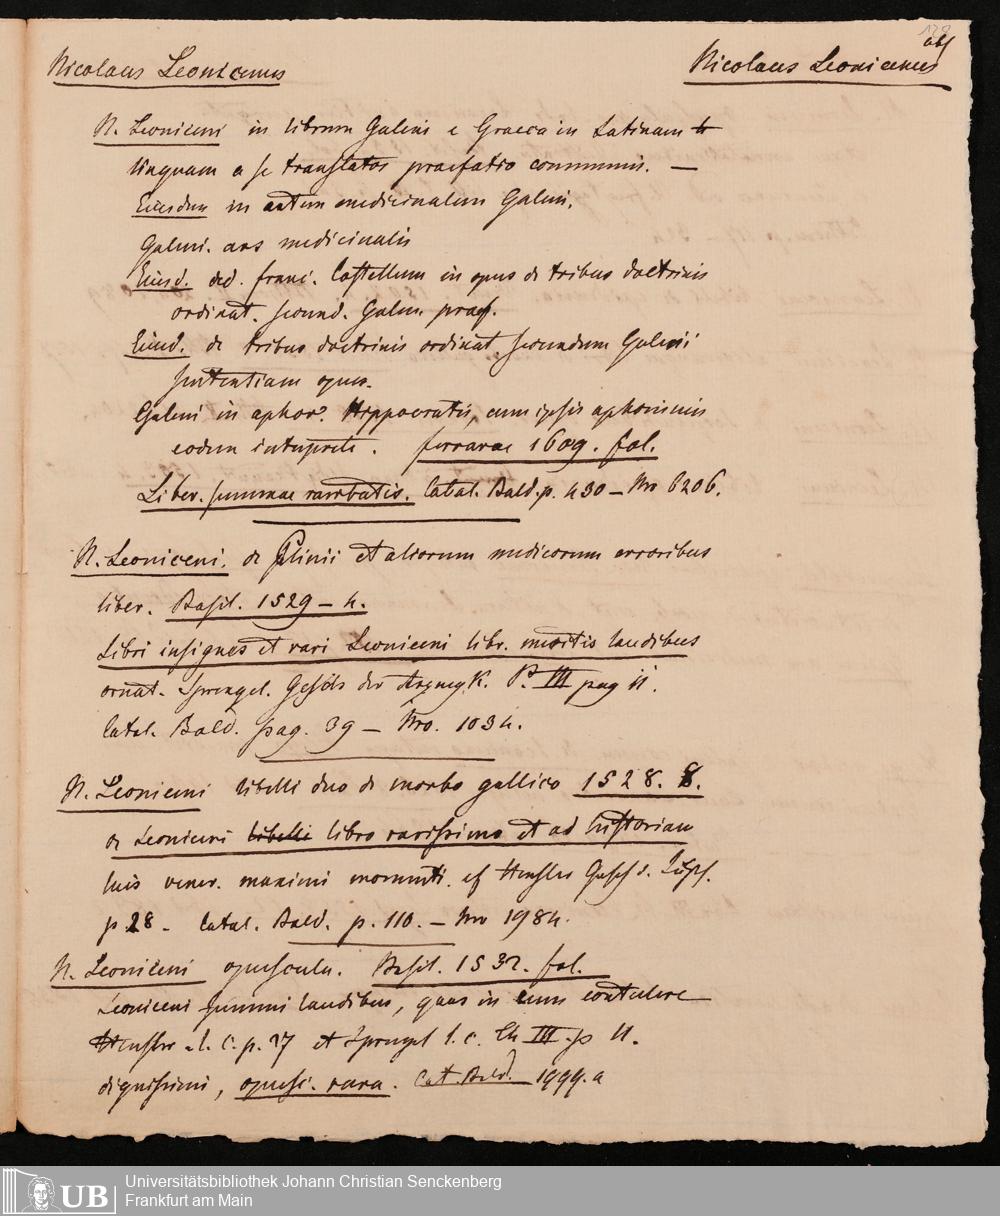 Nicolaus Leonicenus Nicolaus Leonicenus
N. Leoniceni in librum Galeni e Graeca in Latinam
linguam a se translatos praefatio communis. —
Eiusdem in artem medicinalem Galeni.
Galeni. ars medicinalis
Eiusd. ad. franc. Castellum in opus de tribus doctrinis
ordinat. secund. Galen. praef.
Eiusd. de tribus doctrinis ordinat. secundum Galeni
sententiam opus.
Galeni in aphor. Hippocratis, cum ipsis aphorismis
eodem interprete. ferrarae 1609. fol.
Liber. summae raritatis. Catal. Bald. p. 430 — Nro 6206.
N. Leoniceni. de Plinii et aliorum medicorum erroribus
liber. Basil. 1529 — 4.
Libri insignes et rari Leoniceni libr. meritis laudibus
ornat. Sprengel. Gesch der Arzneyk. P. III pag 11.
Catal. Bald. pag. 39 — Nro. 1034.
N. Leoniceni libelli duo de morbo gallico 1528. 8.
de Leoniceni libelli libro rarissimo et ad historiam
luis vener. maximi momenti. cf Hensler Gesch d. Lusts.
p. 28 — Catal. Bald. p. 110. — Nro 1984.
N. Leoniceni opuscula. Basil. 1532. fol.
Leoniceni summi laudibus, quas in eum contulere
Hensler l. c. p. 27 et Sprengel l. c. Th III. p 11.
dignissimi, opusc. rara. Cat. Bald. 1999.a
Universitätsbibliothek Johann Christian Senckenberg
UB Frankfurt am Main